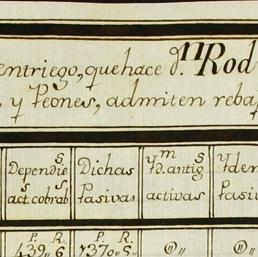 entriego, que hace d.n Rod
, y Peones, admiten reba
Dependie.s Dichas Yd.m antig.s Yden
act.s cobrab.s Pasivas activas Pasi
P. R. P. R.
439,, 6 1370,, 5,, ,,0,, ,,0,,